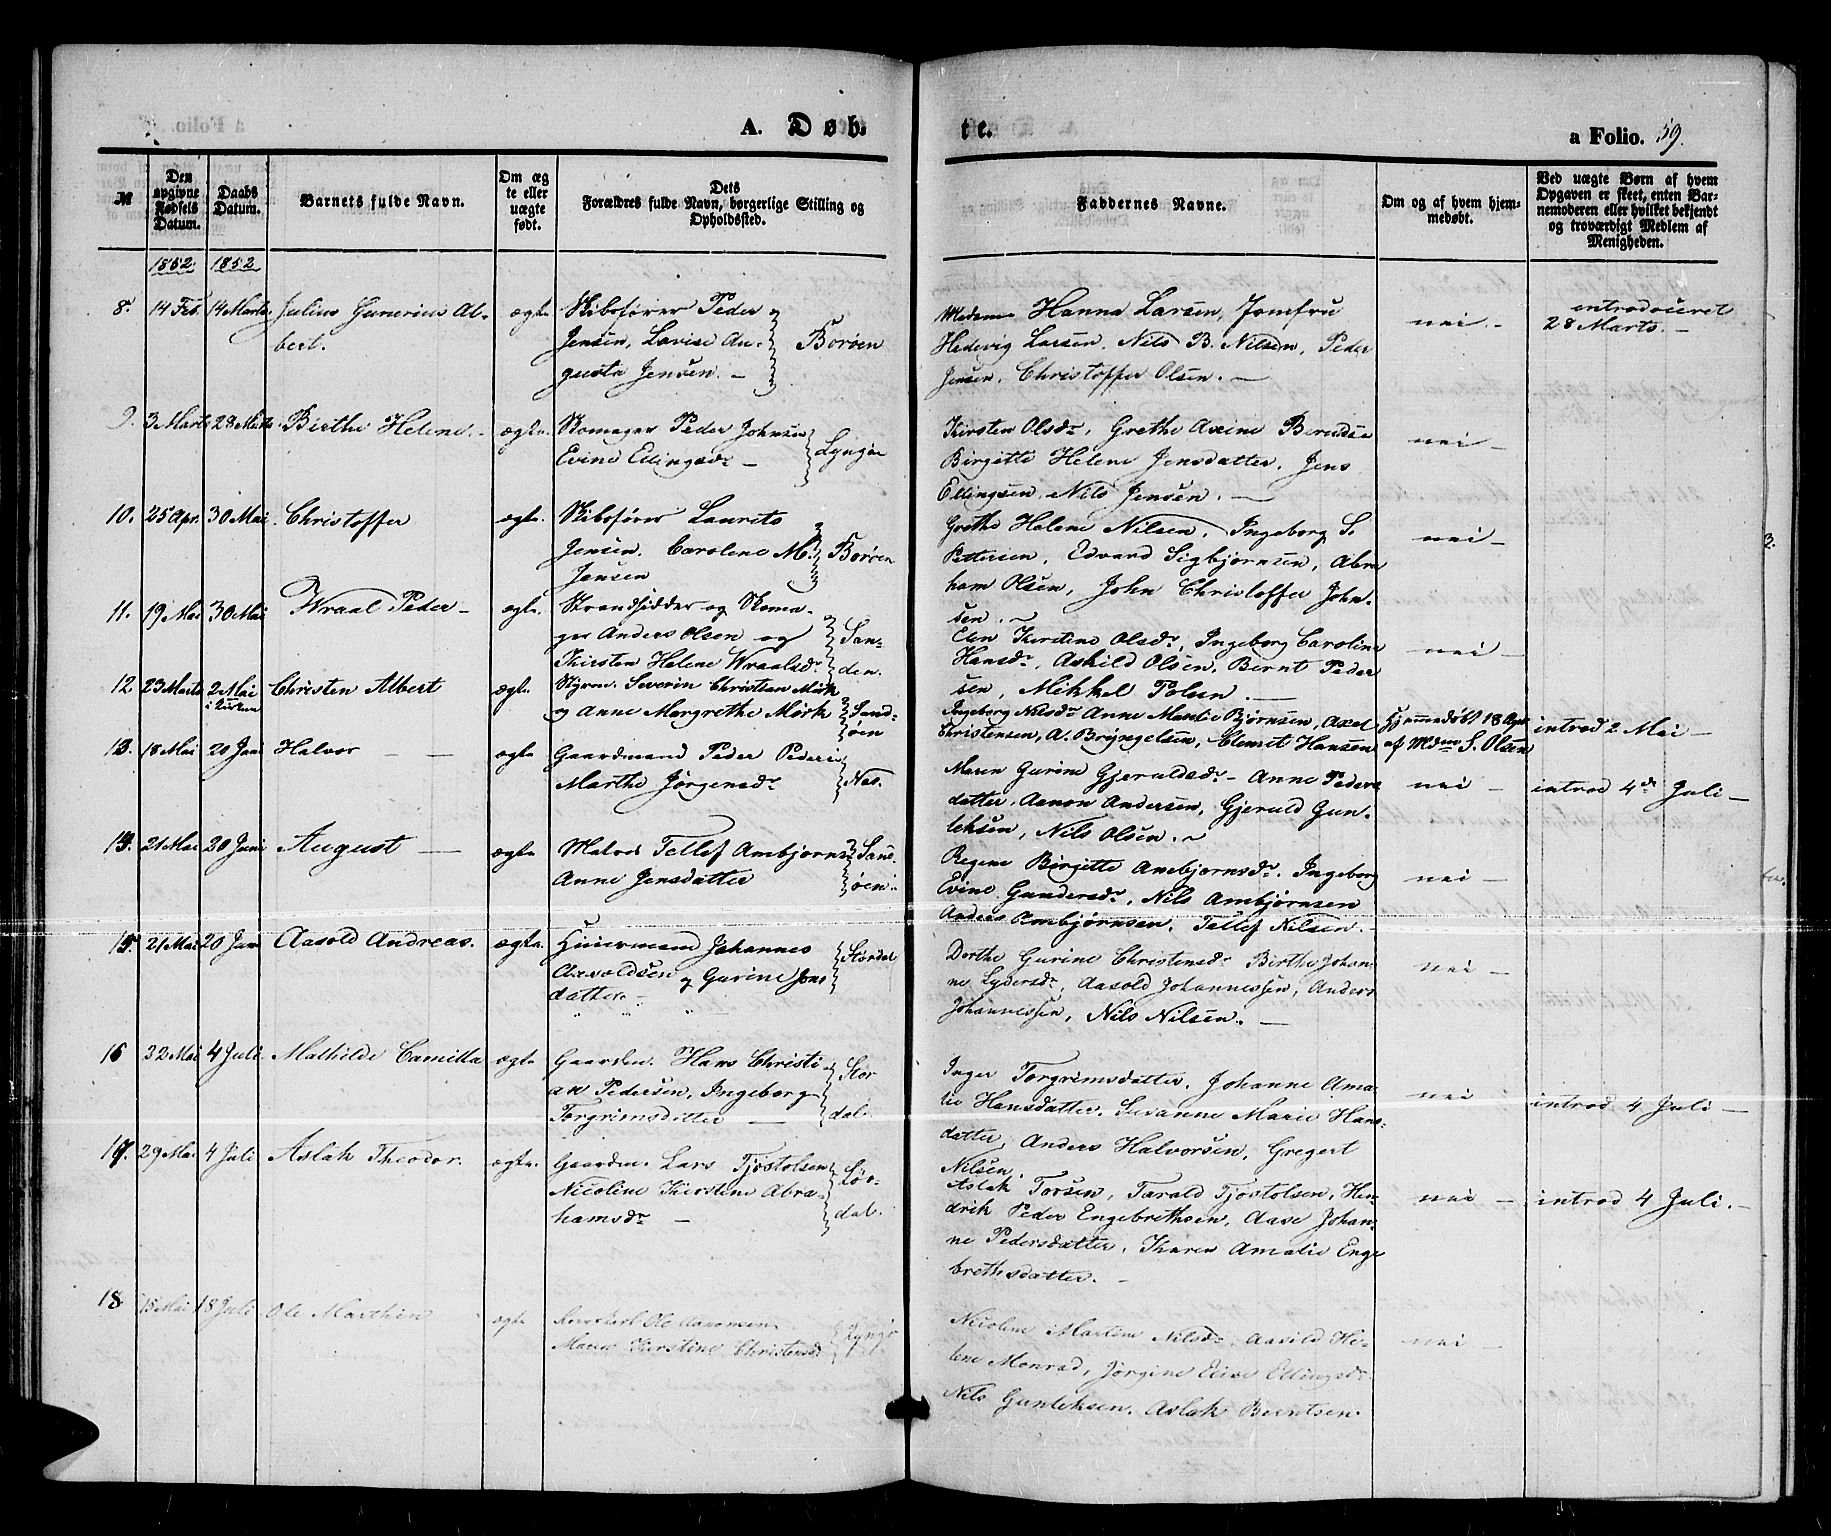 A. Døb-
te.
a Folio. 59.
№
Den opgivne Fødsels Datum.
Daabs Datum.
Barnets fulde Navn.
Om ægte eller uægte født.
Dets Forældres fulde Navn, borgerlige Stilling og Opholdssted.
Faddernes Navne.
Om og af hvem hjemmedøbt.
Ved uægte Børn af hvem Opgaven er skeet, enten Barnemoderen eller hvilket bekjendt og troværdigt Medlem af Menigheden.
1852. 1852
8. 14 Feb. 14 Marts. Julius Gunerius Al-
bert.
ægte
Skibsfører Peder
Jensen, Lovise Au-
gusta Jensen. -
Borøen
Madame Hanna Larsen, Jomfru
Hedevig Larsen, Nils B. Nilsen, Peder
Jensen, Christoffer Olsen. -
nei -
introduseret
28 Marts. -
9. 3 Marts 28 Marts Birthe Helene. -
ægte.
Skomager Peder Johnsen
Evine Ellingsdr -
Lyngør
Kirsten Olsdr, Grethe Axine Berndsen
Birgitte Helene Jensdatter, Jens
Ellingsen, Nils Jensen. -
nei -
10. 25 Apr. 30 Mai Christoffer
ægte.
Skibsfører Laurits
Jensen. Carolene M.
Jensen
Borøen
Grethe Helene Nilsen, Ingeborg S.
Pettersen, Edvard Sigbjørnsen, Abra
ham Olsen, John Christoffer John-
sen. -
nei -
11. 19 Mai 30 Mai Wraal Peder -
ægte.
Strandsidder og Skoma-
ger Anders Olsen og
Kirsten Helene Wraalsdr
San-
den.
Elen Kirstine Olsdr, Ingeborg Caroline
Hansdr, Askild Olsen, Bernt Peder
sen, Mikkel Polsen. -
nei -
12 23 Marts 2 Mai
i Kirken
Christen Albert
ægte.
Styrm. Severin Christian Mørk
og Anne Margrethe Mørk
Sand-
øen
Ingeborg Nilsdr Anne Mantie Bjørnsen, Axel
Christensen, A. Bryngelsen, Clemet Hansen
Hjemmedøbt 18 Apr
af Mdme S. Olsen
introd 2 Mai -
13. 18 Mai 20 Juni Halvor - -
ægte
Gaardmand Peder Peders
Marthe Jørgensdr
Næs.
Maren Gurine Gjeruldsdr - Anne Peders
datter, Aanon Andersen, Gjeruld Gun-
leksen, Nils Olsen. -
nei -
introd 4de Juli -
21 Mai 20 Juni August -
ægte
Matros Tellef Ambjørns
Anne Jensdatter
Sand
øen.
Regine Birgitte Ambjørnsdr. Ingeborg
Evine Gundersdr, Nils Ambjørnsen
Anders Ambjørnsen, Tellef Nilsen. -
nei -
15. 21 Mai 20 Juni Aasold Andreas.
ægte.
Huusmand Johannes
Aasoldsen og Gurine Jens
datter. -
Størdal
Dorthe Gurine Christensdr Birthe Johan-
ne Lydersdr, Aasold Johannessen, Anders
Johannessen, Nils Nilsen. -
nei -
16 32 Mai 4 Juli. Mathilde Camilla
ægte
Gaardm. Hans Christi
an Pedersen, Ingeborg
Torgrimsdatter -
Stor
dal.
Inger Torgrimsdatter, Johanne Ama-
lie Hansdatter, Susanne Marie Hans-
datter, Anders Halvorsen, Gregert
Nilsen.
nei -
introd 4 Juli -
17. 29 Mai 4 Juli Aslak Theodor.
ægte.
Gaardm. Lars Tjostolsen
Nicoline Kirstine Abra-
hamsdr -
dal.
Aslak Torsen, Tarald Tjostolsen, Hen
drik Peder Engebrethsen, Aase Johan-
ne Pedersdatter, Karen Amalie Enge
brethsdatter. -
nei -
introd 4 Juli. -
18 15 Mai 18 Juli Ole Marthin
ægte
Ole Aanonsen
Maren Kirstine Christensdr
Lyngør
Nicoline Martine Nilsdr, Aasild He-
lene Monrad, Jørgine Elise Ellingsdr
Nils Gunleksen, Aslak Berntsen.
nei -